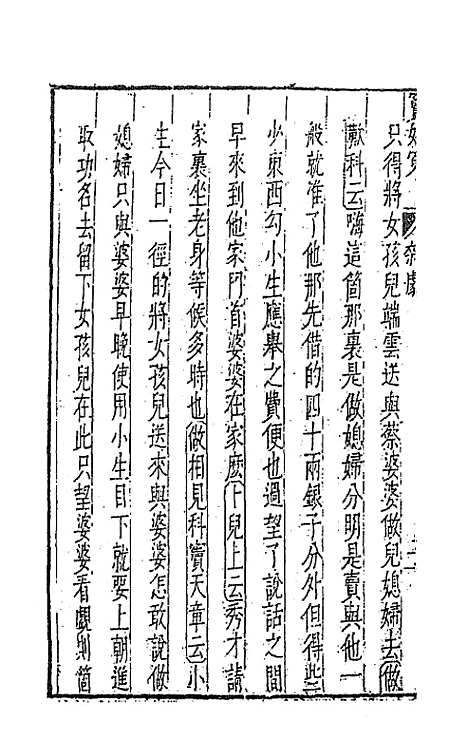 竇娥冤
雜劇
只得將女孩兒端雲送與蔡婆婆做兒媳婦去做
歎科云嗨這箇那裏是做媳婦分明是賣與他一
般就准了他那先借的四十兩銀子分外但得些
少東西勾小生應舉之費便也過望了說話之間
早來到他家門首婆婆在家麼卜兒上云秀才請
家裏坐老身等候多時也做相見科竇天章云小
生今日一徑的將女孩兒送來與婆婆怎敢說做
媳婦只與婆婆早晚使用小生目下就要上朝進
取功名去留下女孩兒在此只望婆婆看覷則箇